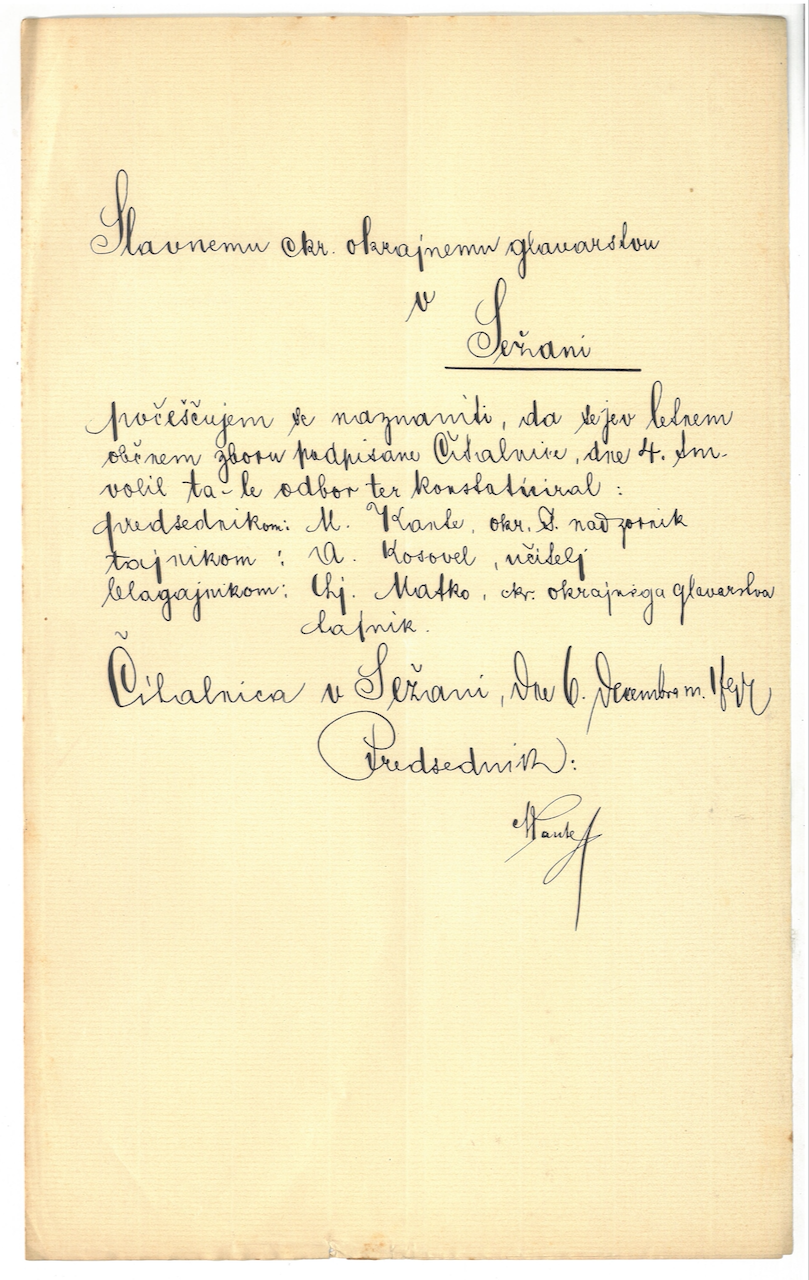 Slavnemu ckr. okrajnemu glavarstvu
v
Sežani
počeščujem se naznaniti, da se je v letnem
občnem zboru podpisane Čitalnice, dne 4. t m.
volil ta-le odbor ter konstatuiral:
predsednikom: M. Kante, okr. š. nadzornik
tajnikom: A. Kosovel, učitelj
blagajnikom: Matko, ckr. okrajnega glavarstva
tajnik.
Čitalnica v Sežani, dne 6. decembra m.
Predsednik:
Kante